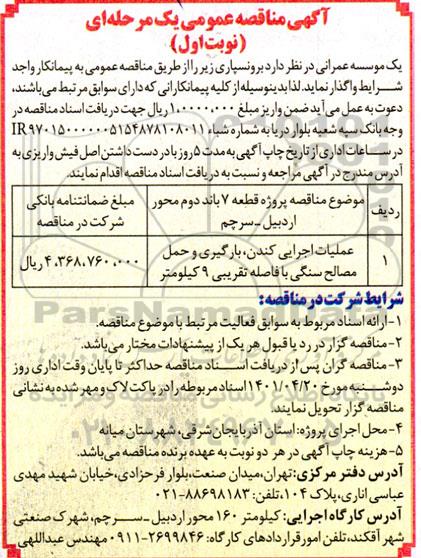 آگهی مناقصه عمومی یک مرحله‌ای
(نوبت اول)
یک موسسه عمرانی در نظر دارد برونسپاری زیر را از طریق مناقصه عمومی به پیمانکار واجد
شرایط واگذار نماید. لذا بدینوسیله از کلیه پیمانکارانی که دارای سوابق مرتبط می‌باشند،
دعوت به عمل می‌آید ضمن واریز مبلغ ۱۰۰۰۰۰۰ ریال جهت دریافت اسناد مناقصه در
وجه بانک سپه شعبه بلوار دریا به شماره شباء IR۹۷۰۱۵۰۰۰۰۰۰۵۱۵۴۸۷۸۱۰۸۰۱۱
در ساعات اداری از تاریخ چاپ آگهی به مدت ۵ روز با در دست داشتن اصل فیش واریزی به
آدرس مندرج در آگهی مراجعه و نسبت به دریافت اسناد مناقصه اقدام نمایند.
ردیف موضوع مناقصه پروژه قطعه ۷ باند دوم محور اردبیل ـ سرچم مبلغ ضمانتنامه بانکی شرکت در مناقصه
۱ عملیات اجرایی کندن، بارگیری و حمل مصالح سنگی با فاصله تقریبی ۹ کیلومتر ۴،۳۶۸،۷۶۰،۰۰۰ ریال
شرایط شرکت در مناقصه:
۱-ارائه اسناد مربوط به سوابق فعالیت مرتبط با موضوع مناقصه.
۲-مناقصه گزار در رد یا قبول هر یک از پیشنهادات مختار می‌باشد.
۳-مناقصه گران پس از دریافت اسناد مناقصه حداکثر تا پایان وقت اداری روز
دوشنبه مورخ ۱۴۰۱/۰۴/۲۰ اسناد مربوطه را در پاکت لاک و مهر شده به نشانی
مناقصه گزار تحویل نمایند.
۴-محل اجرای پروژه: استان آذربایجان شرقی، شهرستان میانه
۵-هزینه چاپ آگهی در هر دو نوبت به عهده برنده مناقصه می‌باشد.
آدرس دفتر مرکزی: تهران، میدان صنعت، بلوار فرحزادی، خیابان شهید مهدی
عباسی اناری، پلاک ۱۰۴، تلفن: ۸۸۶۹۸۱۸۳-۰۲۱
آدرس کارگاه اجرایی: کیلومتر ۱۶۰ محور اردبیل ـ سرچم، شهرک صنعتی
شهر آقکند، تلفن امور قراردادهای کارگاه: ۲۶۹۹۸۴۶-۰۹۱۱ مهندس عبداللهی
ParsNamadData